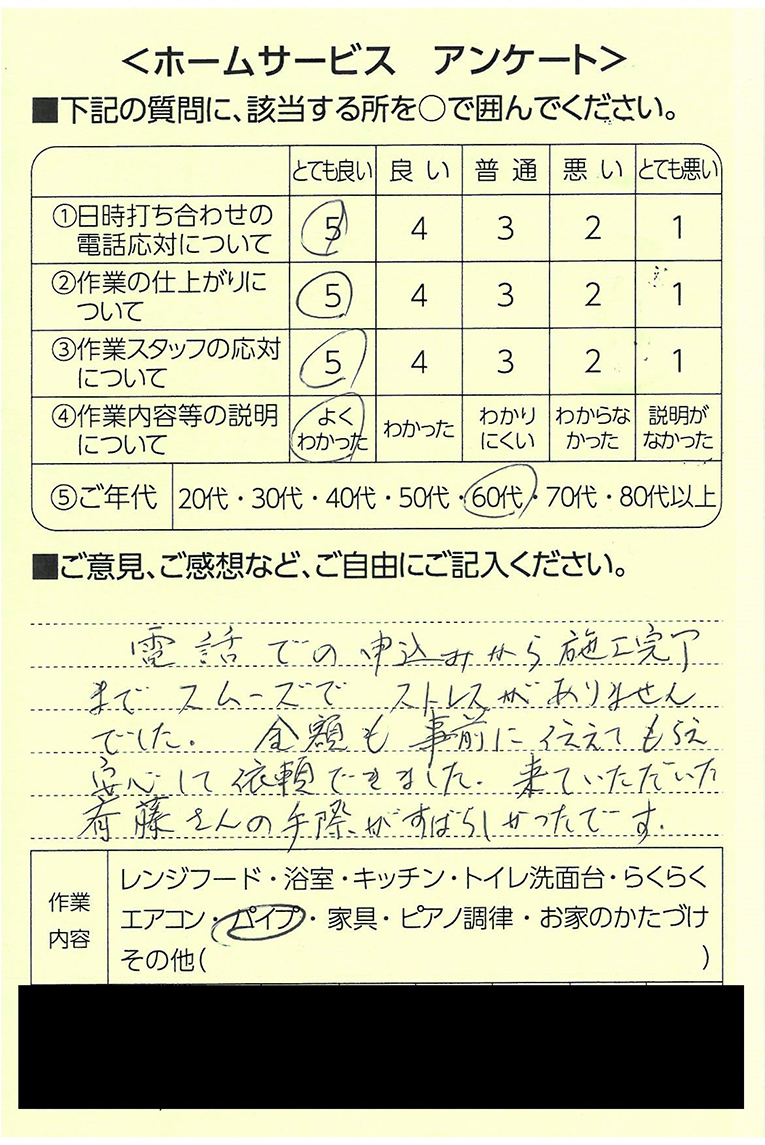 ＜ホームサービス　アンケート＞
■下記の質問に、該当する所を○で囲んでください。
とても良い 良い 普通 悪い とても悪い
①日時打ち合わせの
電話応対について 5 4 3 2 1
②作業の仕上がりに
ついて 5 4 3 2 1
③作業スタッフの応対
について 5 4 3 2 1
④作業内容等の説明 よく わかった わかり わからな 説明が
について わかった にくい かった なかった
⑤ご年代 20代・30代・40代・50代・60代・70代・80代以上
■ご意見、ご感想など、ご自由にご記入ください。
電話での申込みから施工完了
までスムーズで ストレスがありません
でした。 金額も事前に伝えてもらえ
安心して依頼できました。来ていただいた
斉藤さんの手際がすばらしかったです。
作業 レンジフード・浴室・キッチン・トイレ洗面台・らくらく
内容 エアコン・パイプ・家具・ピアノ調律・お家のかたづけ
その他( )